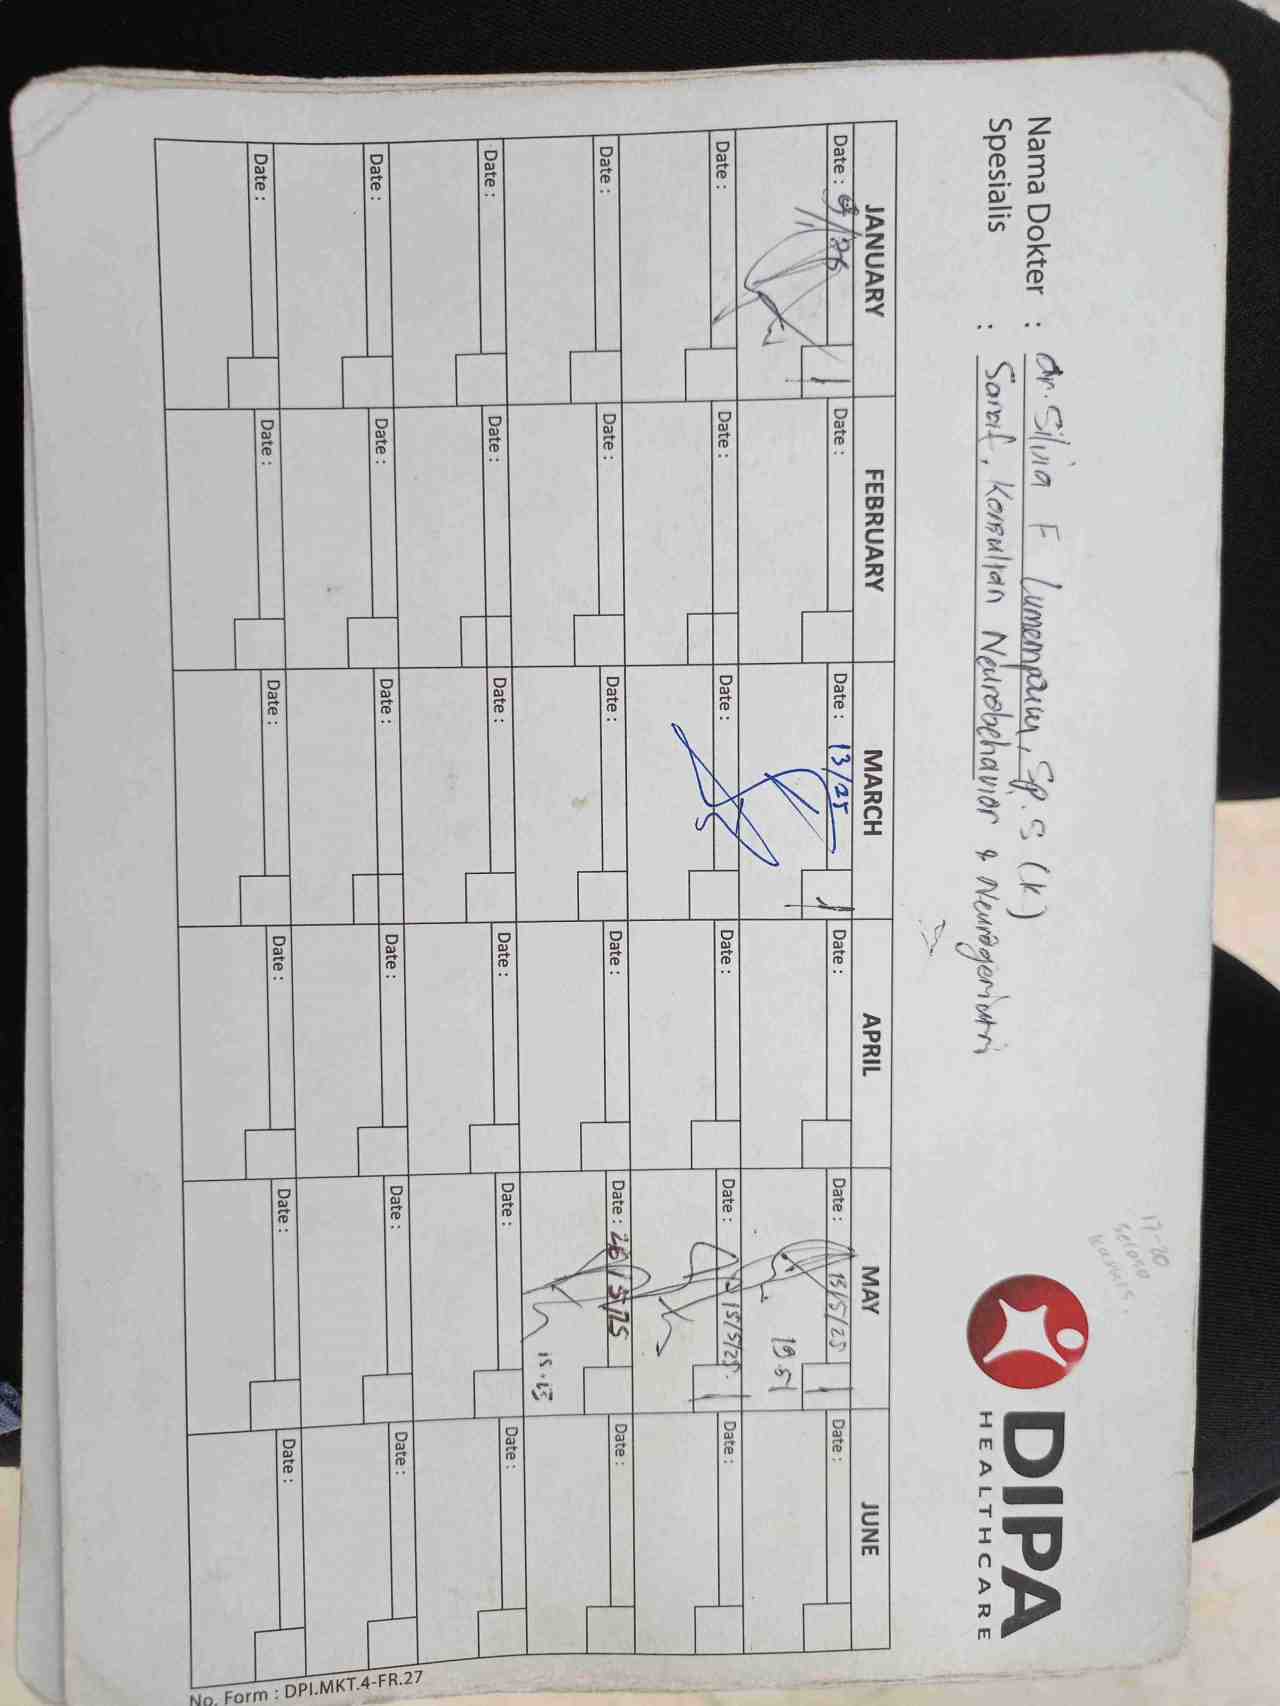 17-20
selasa
kamis.
DIPA
HEALTHCARE
Nama Dokter : dr. Silvia F Lumempouw, Sp. S (K)
Spesialis : Saraf, Konsultan Neurobehavior & Neurogeriatri
JANUARY FEBRUARY MARCH APRIL MAY JUNE
Date : Date : Date : 13/25 Date : Date : 13/5/25 Date :
1 1 1
19.51
Date : Date : Date : Date : Date : 15/5/25. Date :
1
Date : Date : Date : Date : Date : 26/5/25 Date :
15.13
Date : Date : Date : Date : Date : Date :
Date : Date : Date : Date : Date : Date :
Date : Date : Date : Date : Date : Date :
No. Form : DPI.MKT.4-FR.27